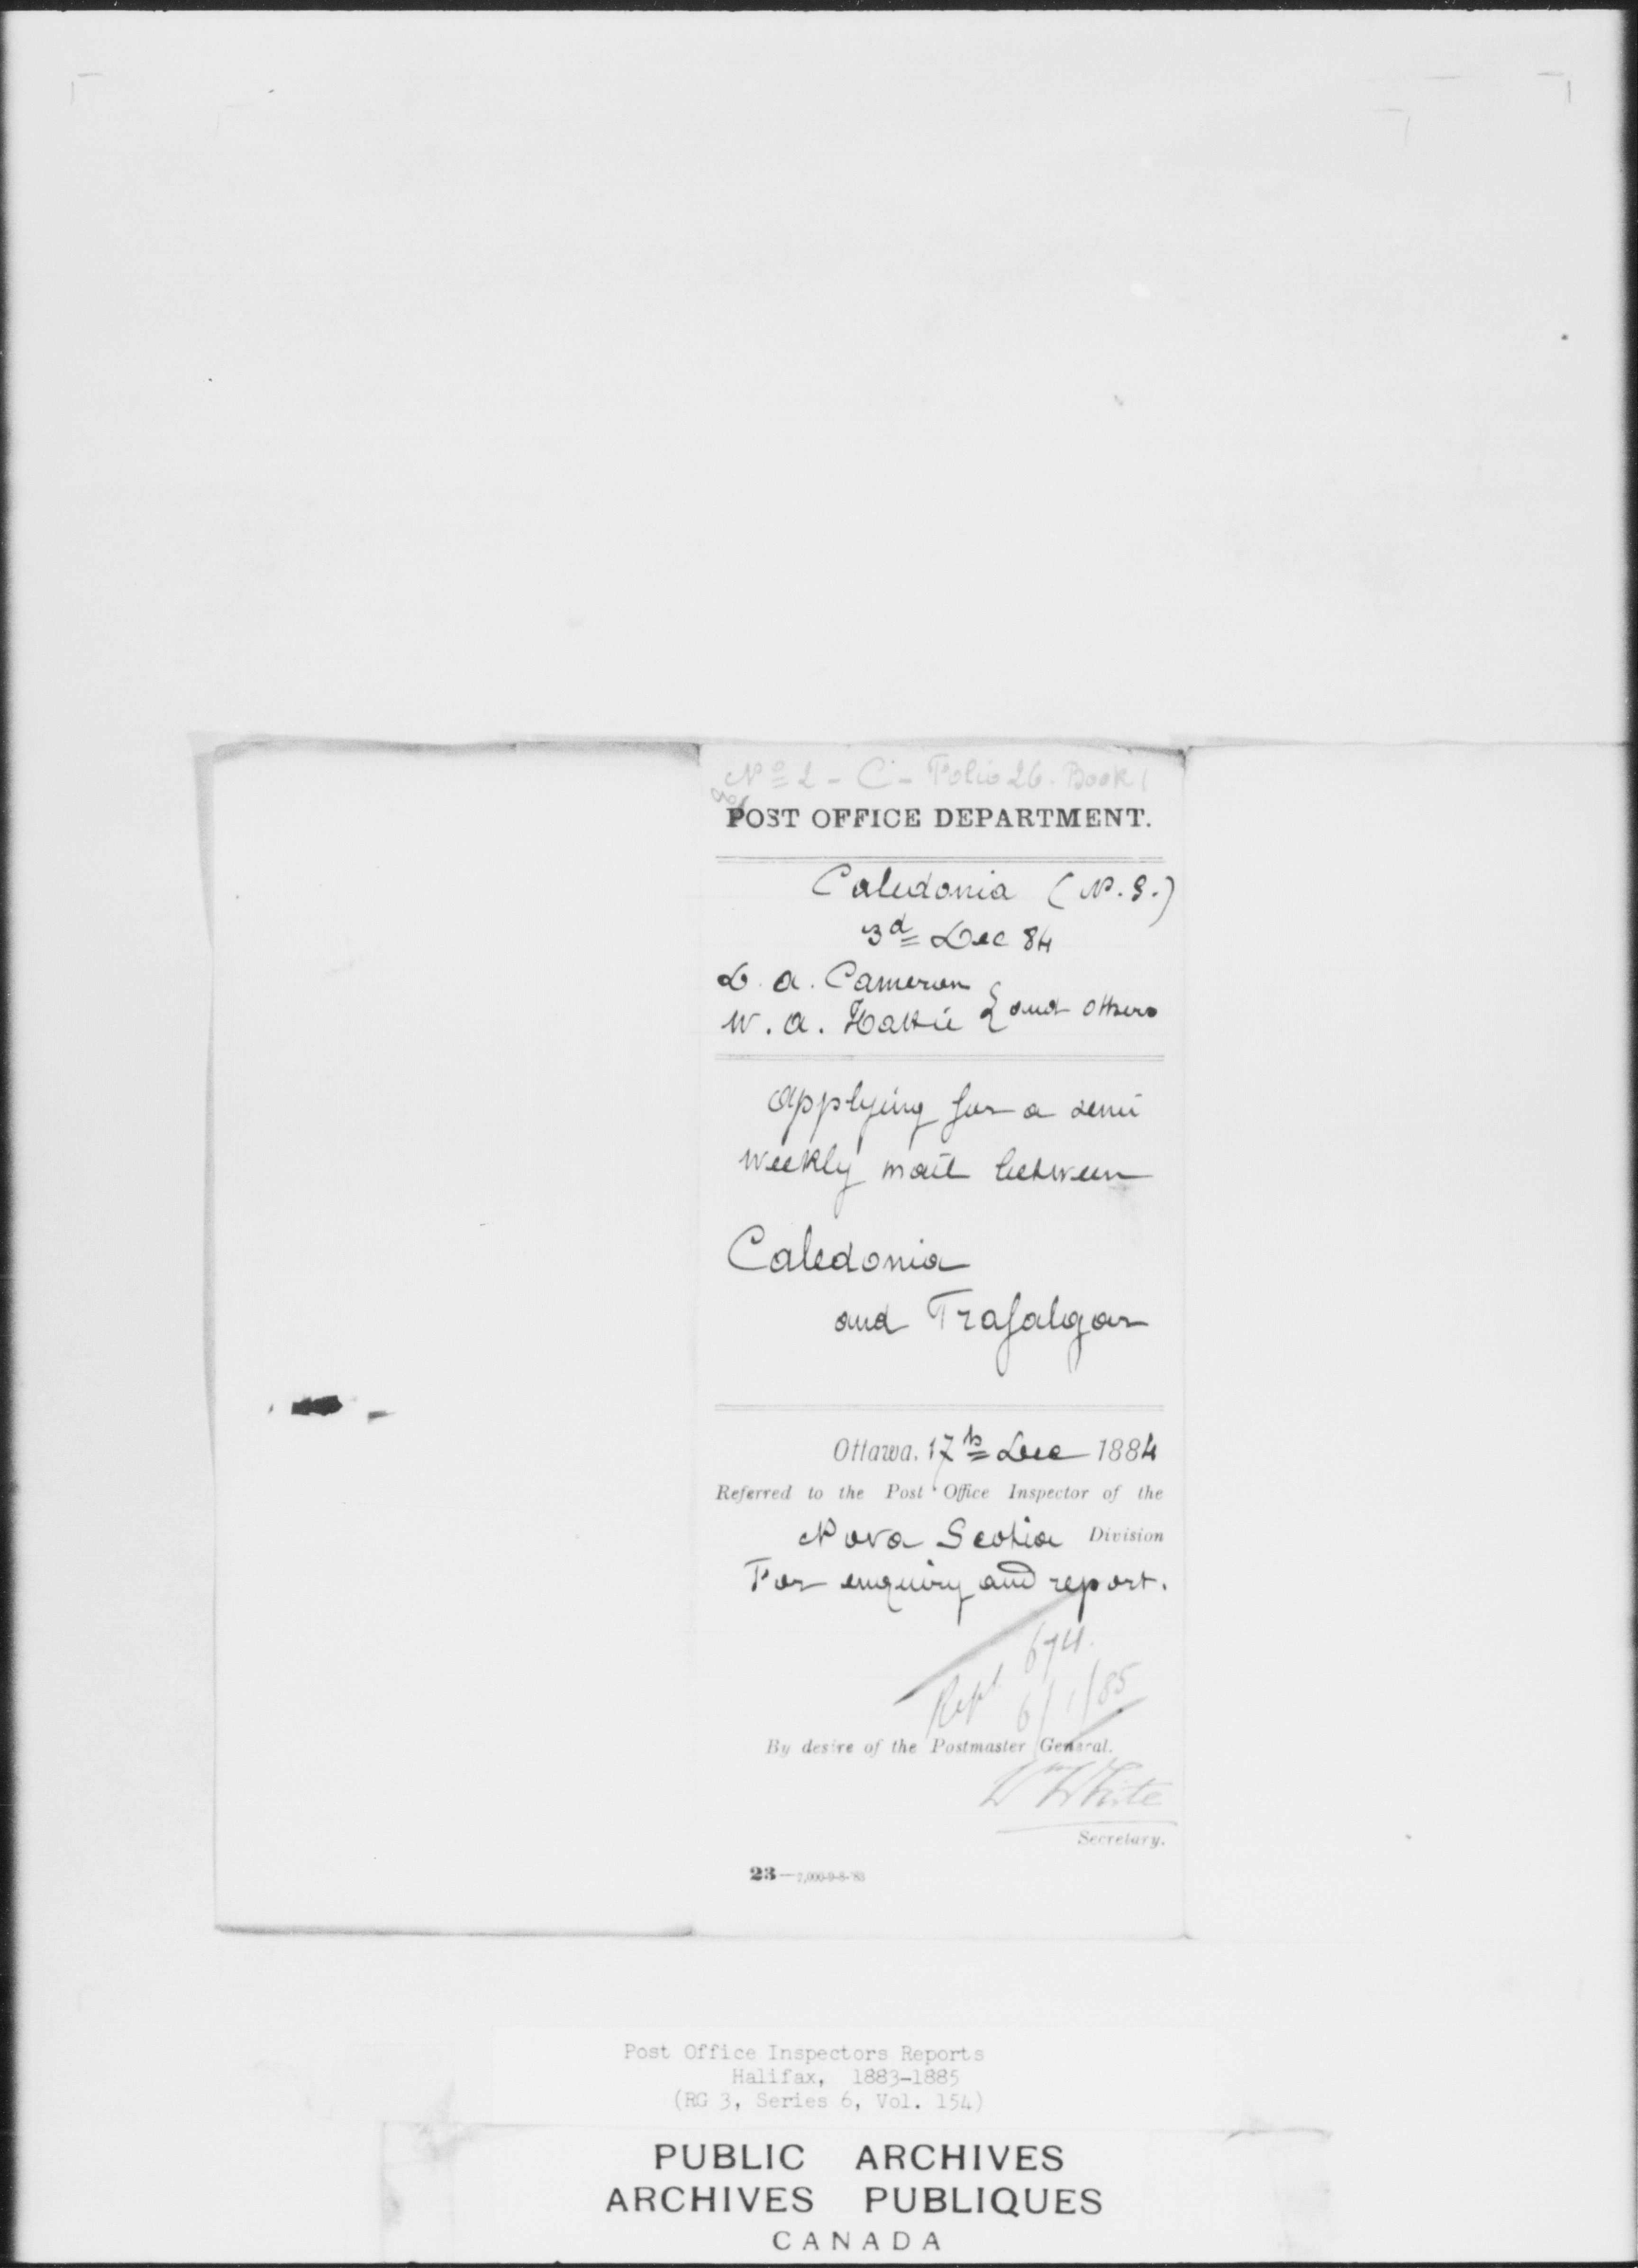 No 2 - C - Folio 26. Book 1
POST OFFICE DEPARTMENT.
Caledonia (N.S.)
3d Dec 84
D. A. Cameron
W. A. Hattie } and others
Applying for a semi
weekly mail between
Caledonia
and Trafalgar
Ottawa, 17th Dec 1884
Referred to the Post Office Inspector of the
Nova Scotia Division
For enquiry and report.
674.
Rept 6/1/85
By desire of the Postmaster General.
Wm White
Secretary.
23—2,000-9-8-'83
Post Office Inspectors Reports
Halifax, 1883-1885
(RG 3, Series 6, Vol. 154)
PUBLIC ARCHIVES
ARCHIVES PUBLIQUES
CANADA